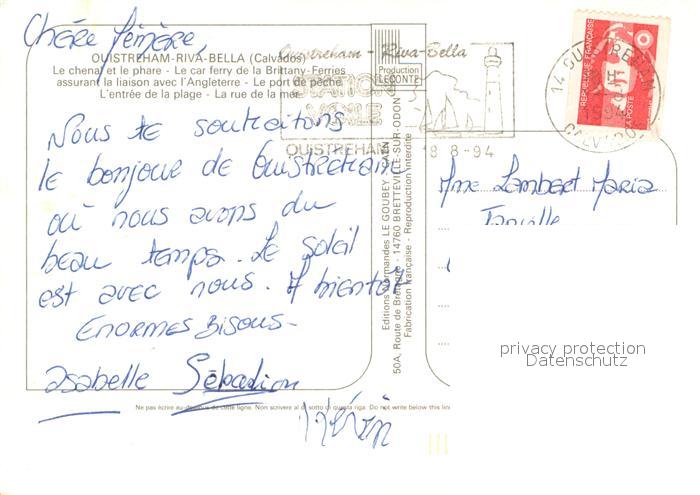 Chère Mémère,
OUISTREHAM-RIVA-BELLA (Calvados)
Le chenal et le phare - Le car ferry de la Brittany-Ferries
assurant la liaison avec l'Angleterre - Le port de pêche
L'entrée de la plage - La rue de la mer
Nous te souhaitons
le bonjour de Ouistreham
où nous avons du
beau temps. Le soleil
est avec nous. A bientôt
ENORMES BISOUS-
Isabelle Sébastien
Kévin
Ne pas écrire au dessous de cette ligne. Non scrivere al di sotto di questa riga. Do not write below this line
Ouistreham - Riva-Bella
OUISTREHAM
18 8-94
Production
LECONTE
Editions Normandes LE GOUBEY - CAEN
50A, Route de Bretagne - 14760 BRETTEVILLE-SUR-ODON
Fabrication française - Reproduction interdite
14 OUISTREHAM
CALVADOS
REPUBLIQUE FRANÇAISE
LA POSTE
Mme Lambert Maria
privacy protection
Datenschutz